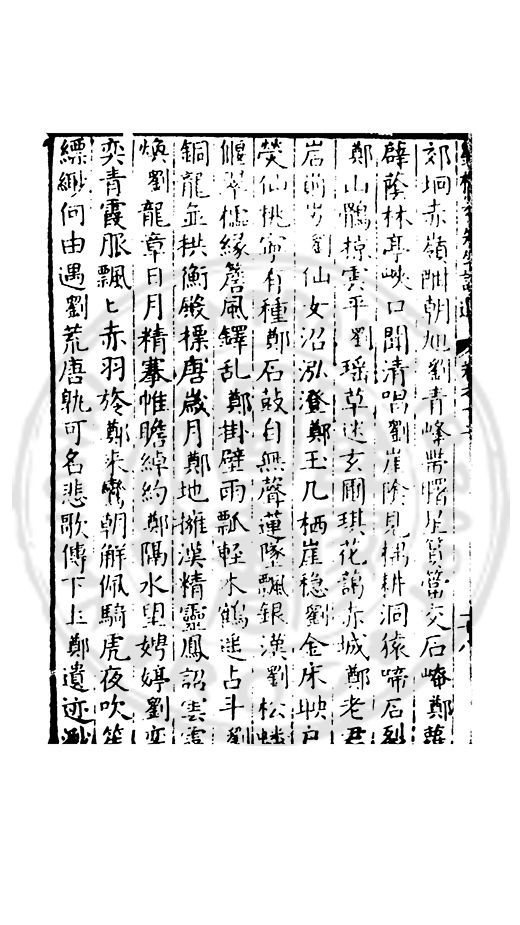 郊坰赤嶺酣朝旭劉青峰帶曙星篔簹交石崦鄭薜
辟蔭林亭峽口聞清唱劉崖陰見耦耕洞猿啼石裂
鄭山鶻掠雲平劉瑶草迷玄圃琪花謁赤城鄭老君
岩前劉仙女沼泓澄鄭玉几栖崖穩劉金床映戶
熒仙桃寧有種鄭石鼓自無聲蓮墜飄銀漢劉松蟠
偃翠檽緣簷風鐸乱鄭掛壁雨瓢輕木鶴遥占斗劉
銅龍並拱衡殿標唐歲月鄭地擁漢精靈鳳詔雲霄
煥劉龍章日月精搴帷瞻綽約鄭隔水望娉婷劉奕
奕青霞服飄匕赤羽旍鄭來鸞朝解佩騎虎夜吹笙
縹緲何由遇劉荒唐孰可名悲歌傳下上鄭遺迹